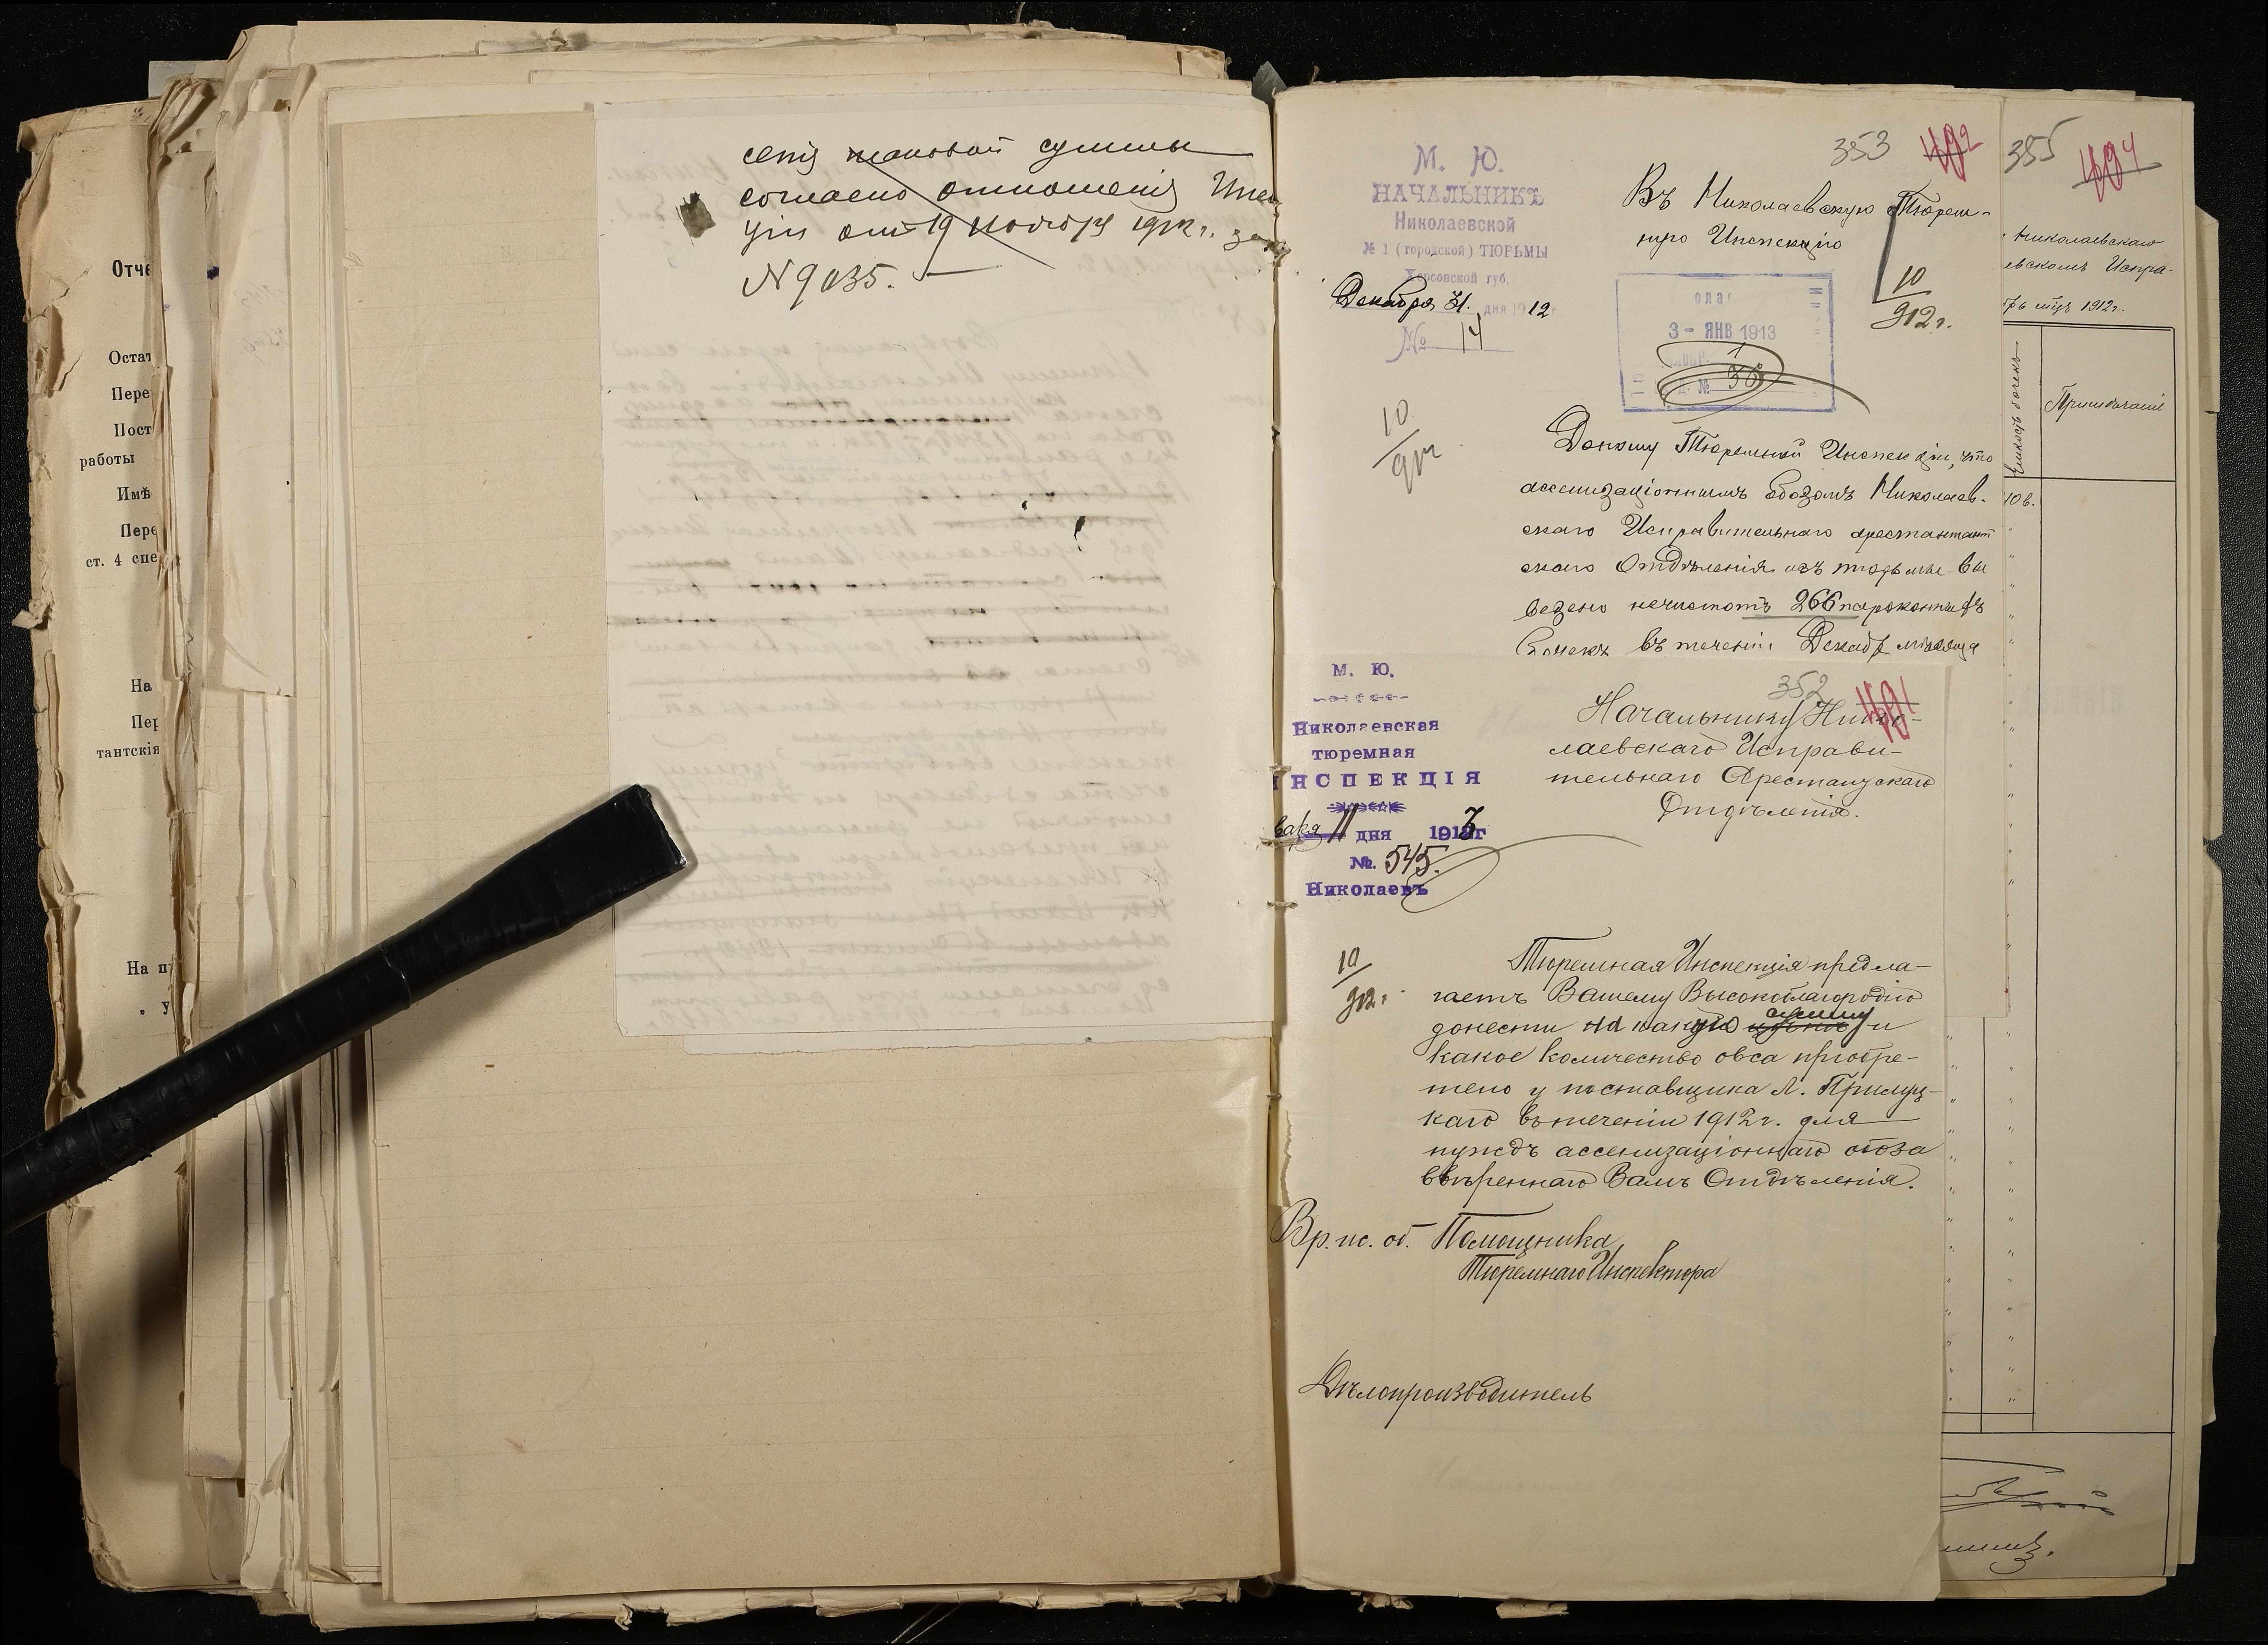 Отче
Остат
Пере
Пост
работы
Имѣ
Пере
ст. 4 спе
На
Пер
тантскія
На п
„ У
сетя таковой суммы
согласно отношенія Инс
ціи отъ 19 Ноября 1912 г. за
№ 9035.
353
М. Ю.
НАЧАЛЬНИКЪ
Николаевской
№ 1 (городской) ТЮРЬМЫ
Херсонской губ.
Декабря 31. дня 1912
№ 14
Въ Николаевскую Тюрем-
ную Инспекцію
10
912 г.
3 - ЯНВ 1913
№ 36
10
912
Доношу Тюремной Инспекціи, что
ассенизаціоннымъ обозомъ Николаев-
скаго Исправительнаго арестант
скаго Отдѣленія изъ тюрьмы вы
везено нечистотъ 266 пароконныхъ
бочекъ въ теченіи Декабр мѣсяца
352
М. Ю.
Николаевская
тюремная
ИНСПЕКЦІЯ
варя 11 дня 1913г
№. 545.
Николаевъ
Начальнику Нико-
лаевскаго Исправи-
тельнаго Арестантскаго
Отдѣленія.
10
912 г.
Тюремная Инспекція предла-
гаетъ Вашему Высокоблагородію
донести на какую сумму и
какое количество овса пріобре-
тено у поставщика Л. Прилуц-
каго въ теченіи 1912 г. для
нуждъ ассенизаціоннаго обоза
ввѣреннаго Вамъ Отдѣленія.
Вр. ис. об. Помощника
Тюремнаго Инспектора
Дѣлопроизводитель
355
494
Николаевскаго
евскомъ Испра-
брѣ мцѣ 1912 г.
Емкость бочекъ
Примѣчаніе
10 в.